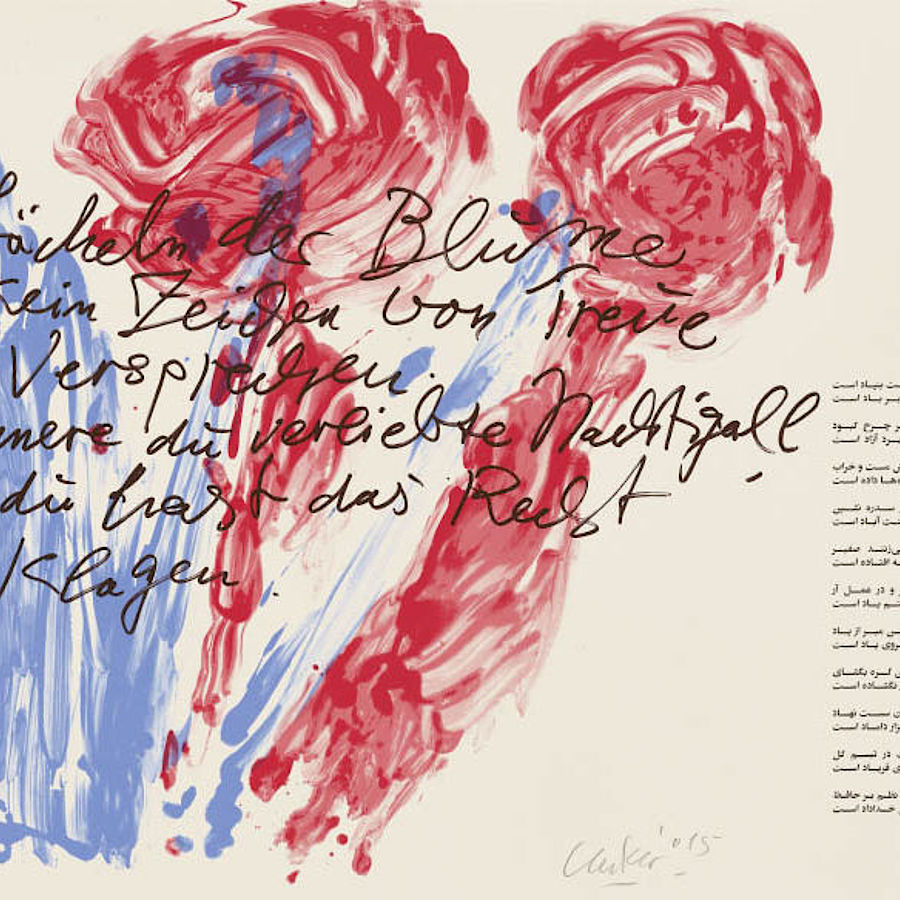 ächeln der Blume
kein Zeichen von Treue
Versprechen.
mere du verliebte Nachtigall,
du hast das Recht
Klagen.
ست بنیاد است
بر باد است
ر چرخ کبود
یرد آزاد است
ش مست و خراب
ده‌ها داده است
سدره نشین
نت آباد است
ی‌زنند صفیر
ه افتاده است
و در عمل آر
تم یاد است
س مبر از یاد
روی یاد است
ن گره بگشای
نگشاده است
ن سست نهاد
زار داماد است
در تبسم گل
ی فریاد است
نظم بر حافظ
خداداد است
Uecker '015